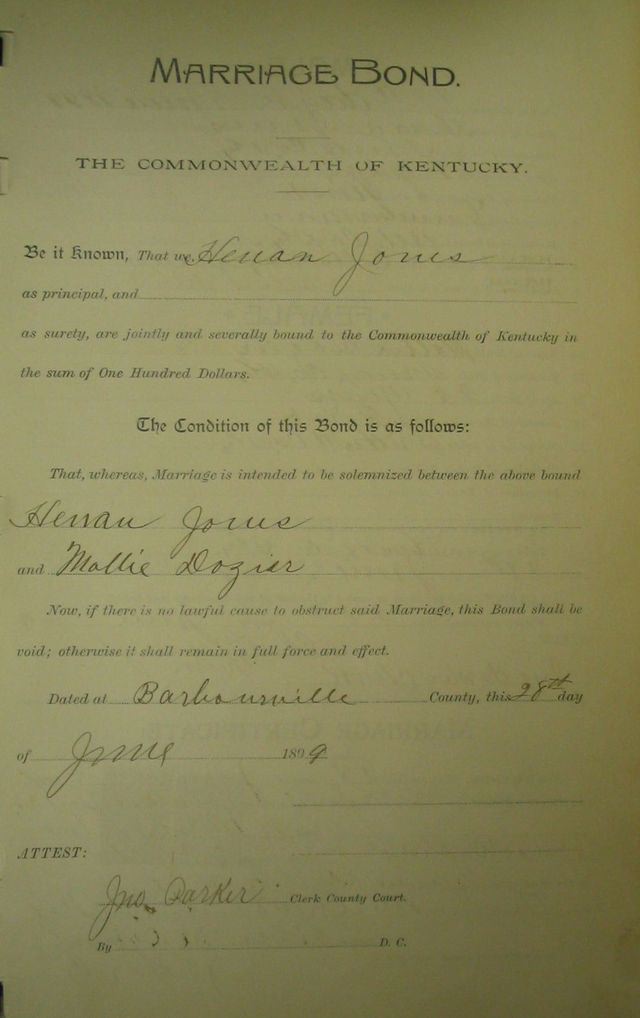 MARRIAGE BOND.
THE COMMONWEALTH OF KENTUCKY.
Be it Known, That we, Henan Jones
as principal, and
as surety, are jointly and severally bound to the Commonwealth of Kentucky in
the sum of One Hundred Dollars.
The Condition of this Bond is as follows:
That, whereas, Marriage is intended to be solemnized between the above bound
Henan Jones
and Mollie Dozier
Now, if there is no lawful cause to obstruct said Marriage, this Bond shall be
void; otherwise it shall remain in full force and effect.
Dated at Barbourville County, this 28th day
of June 1899
ATTEST:
Jno. Parker Clerk County Court.
By D. C.